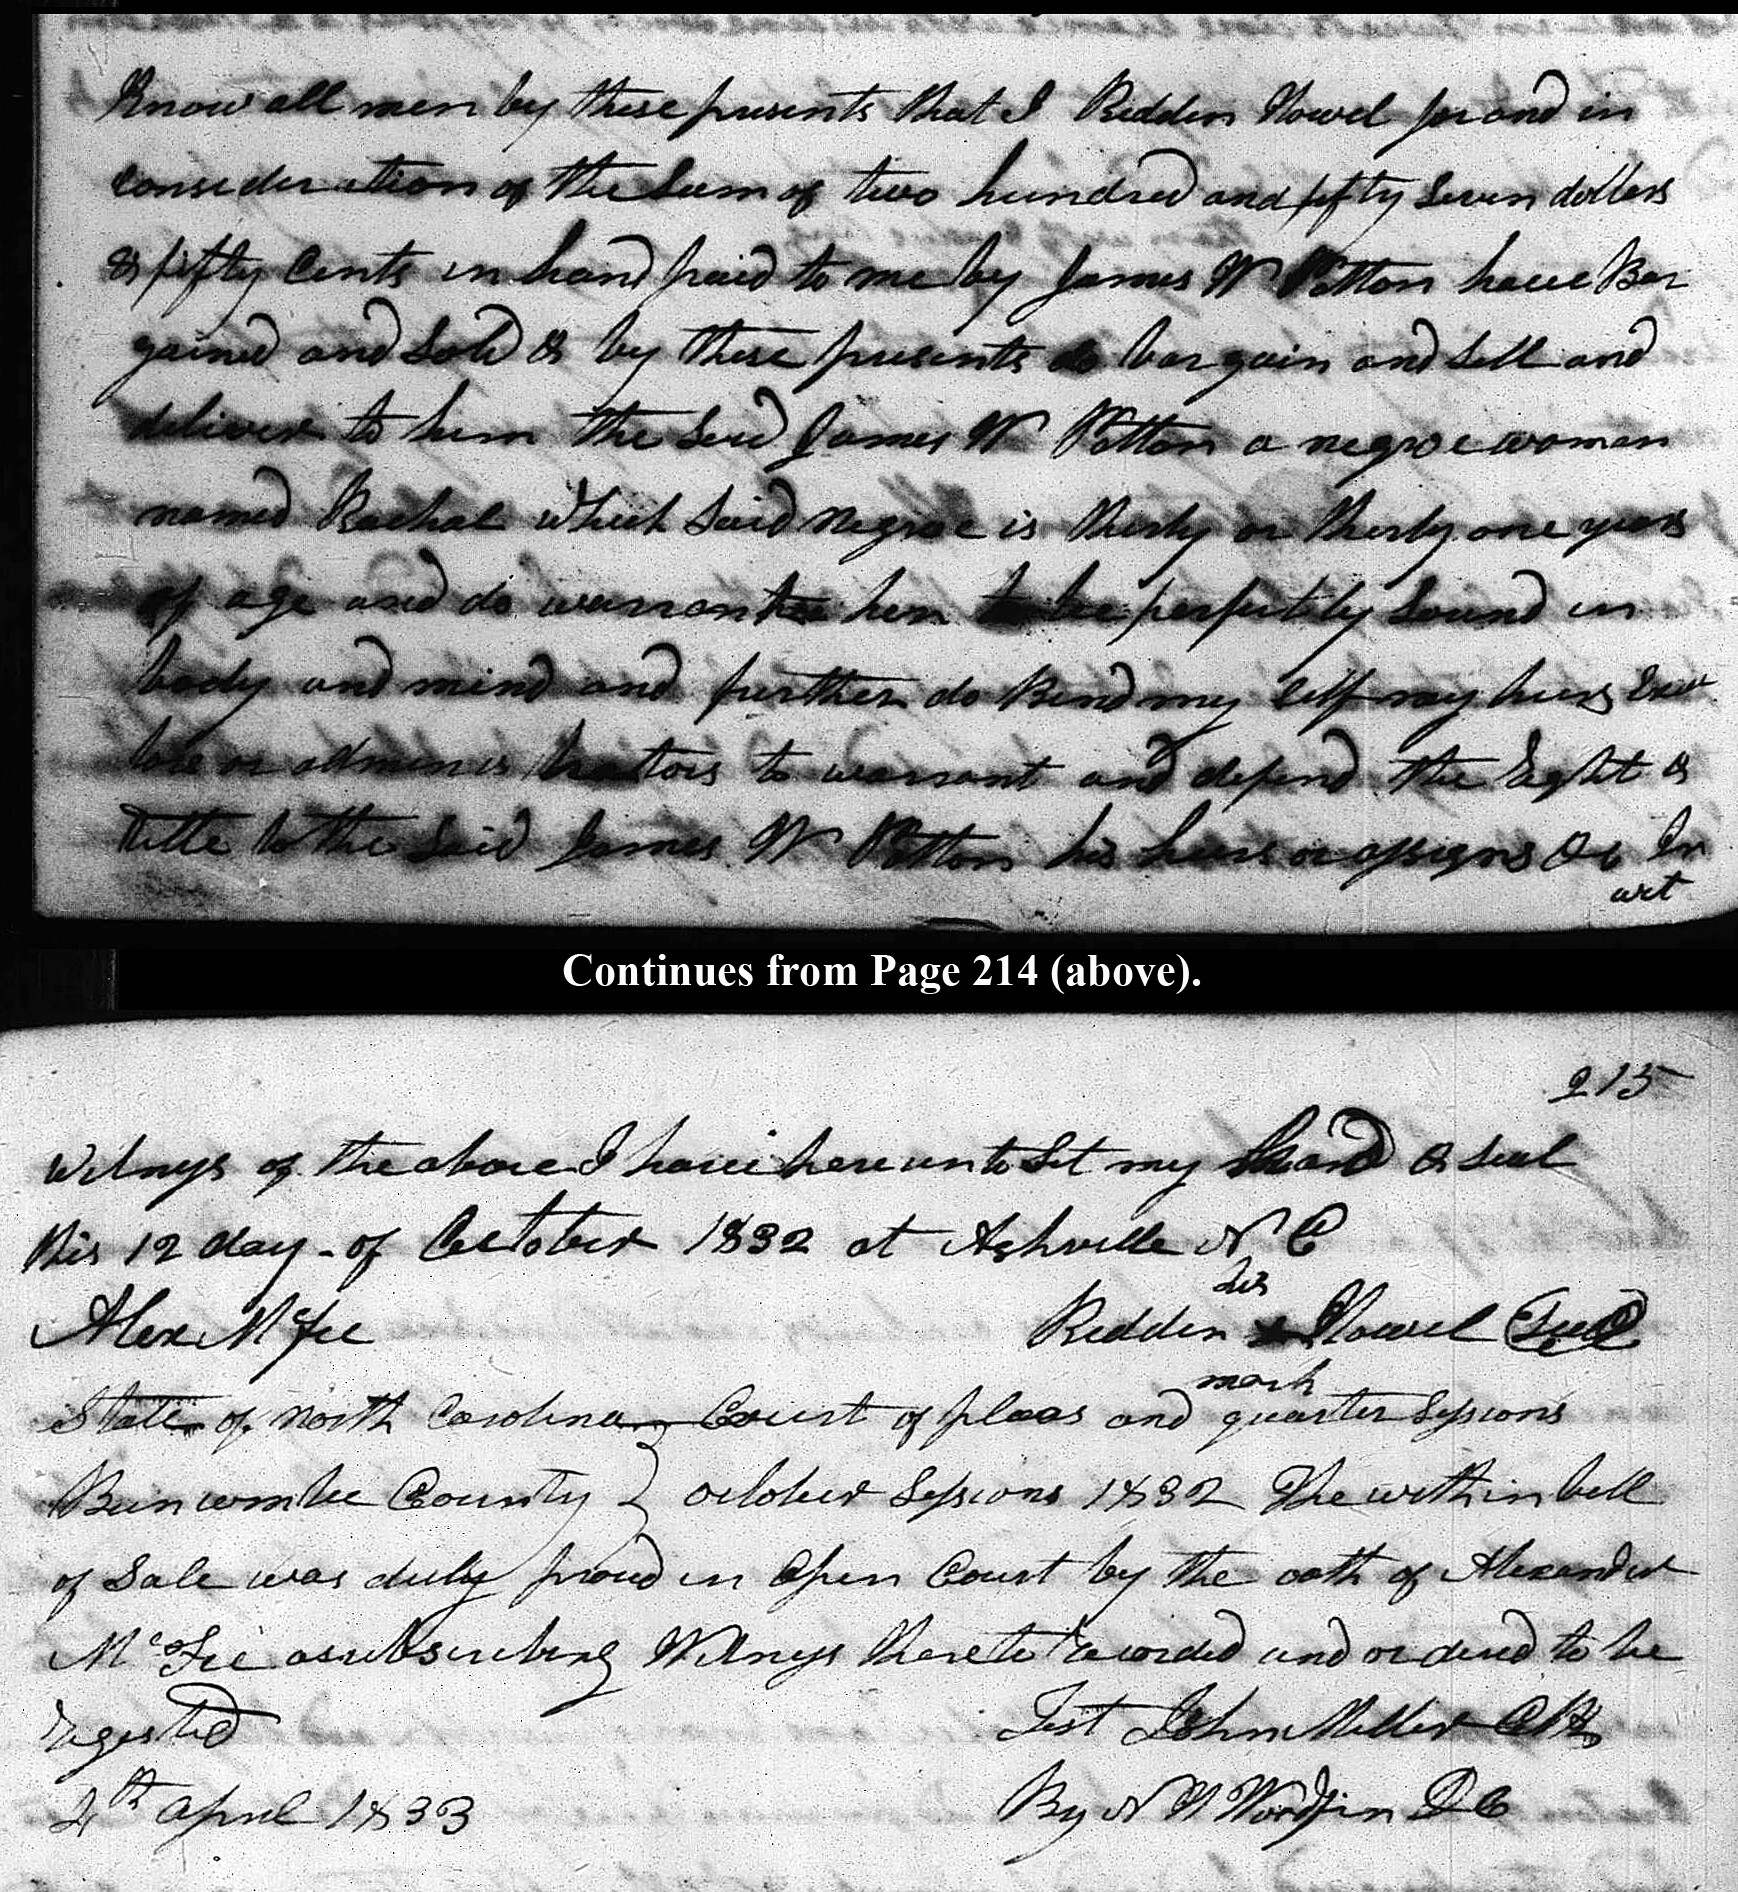 Know all men by these presents that I Redden Nowel for and in
consideration of the Sum of two hundred and fifty Seven dollars
& fifty Cents in hand paid to me by James W Patton have Bar
gained and Sold & by these presents do bargain and Sell and
deliver to him the Said James W Patton a negroe woman
named Rachal which Said Negroe is thirty or thirty one years
of age and do warrantee her to be perfectly Sound in
body and mind and further do Bind my Self my heirs Execu
tors or administrators to warrant and defend the Right &
title to the Said James W Patton his heirs or assigns &c In
wit
Continues from Page 214 (above).
215
Witness of the above I have here unto Set my hand & seal
this 12 day of October 1832 at Ashville N C
his
Alex McFee Redden x Nowel Seal
mark
State of North Carolina Court of pleas and quarter Sessions
Buncombe County } october Sessions 1832 The within bill
of Sale was duly proved in Open Court by the oath of Alexander
McFee a subscribing Witness thereto recorded and ordered to be
regestred Test John Miller Clk
4th april 1833 By N W Woodfin D C